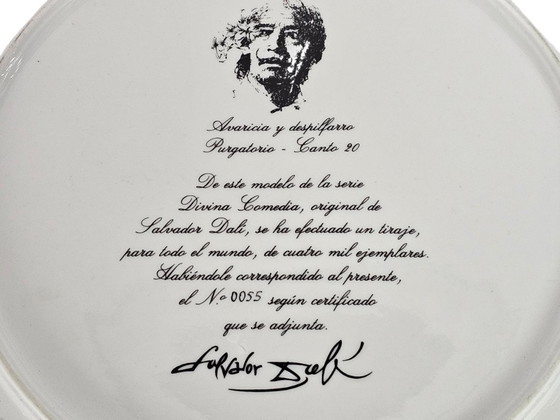 Avaricia y despilfarro
Purgatorio - Canto 20
De este modelo de la serie
Divina Comedia, original de
Salvador Dalí, se ha efectuado un tiraje,
para todo el mundo, de cuatro mil ejemplares.
Habiéndole correspondido al presente,
el N.º 0055 según certificado
que se adjunta.
Salvador Dalí